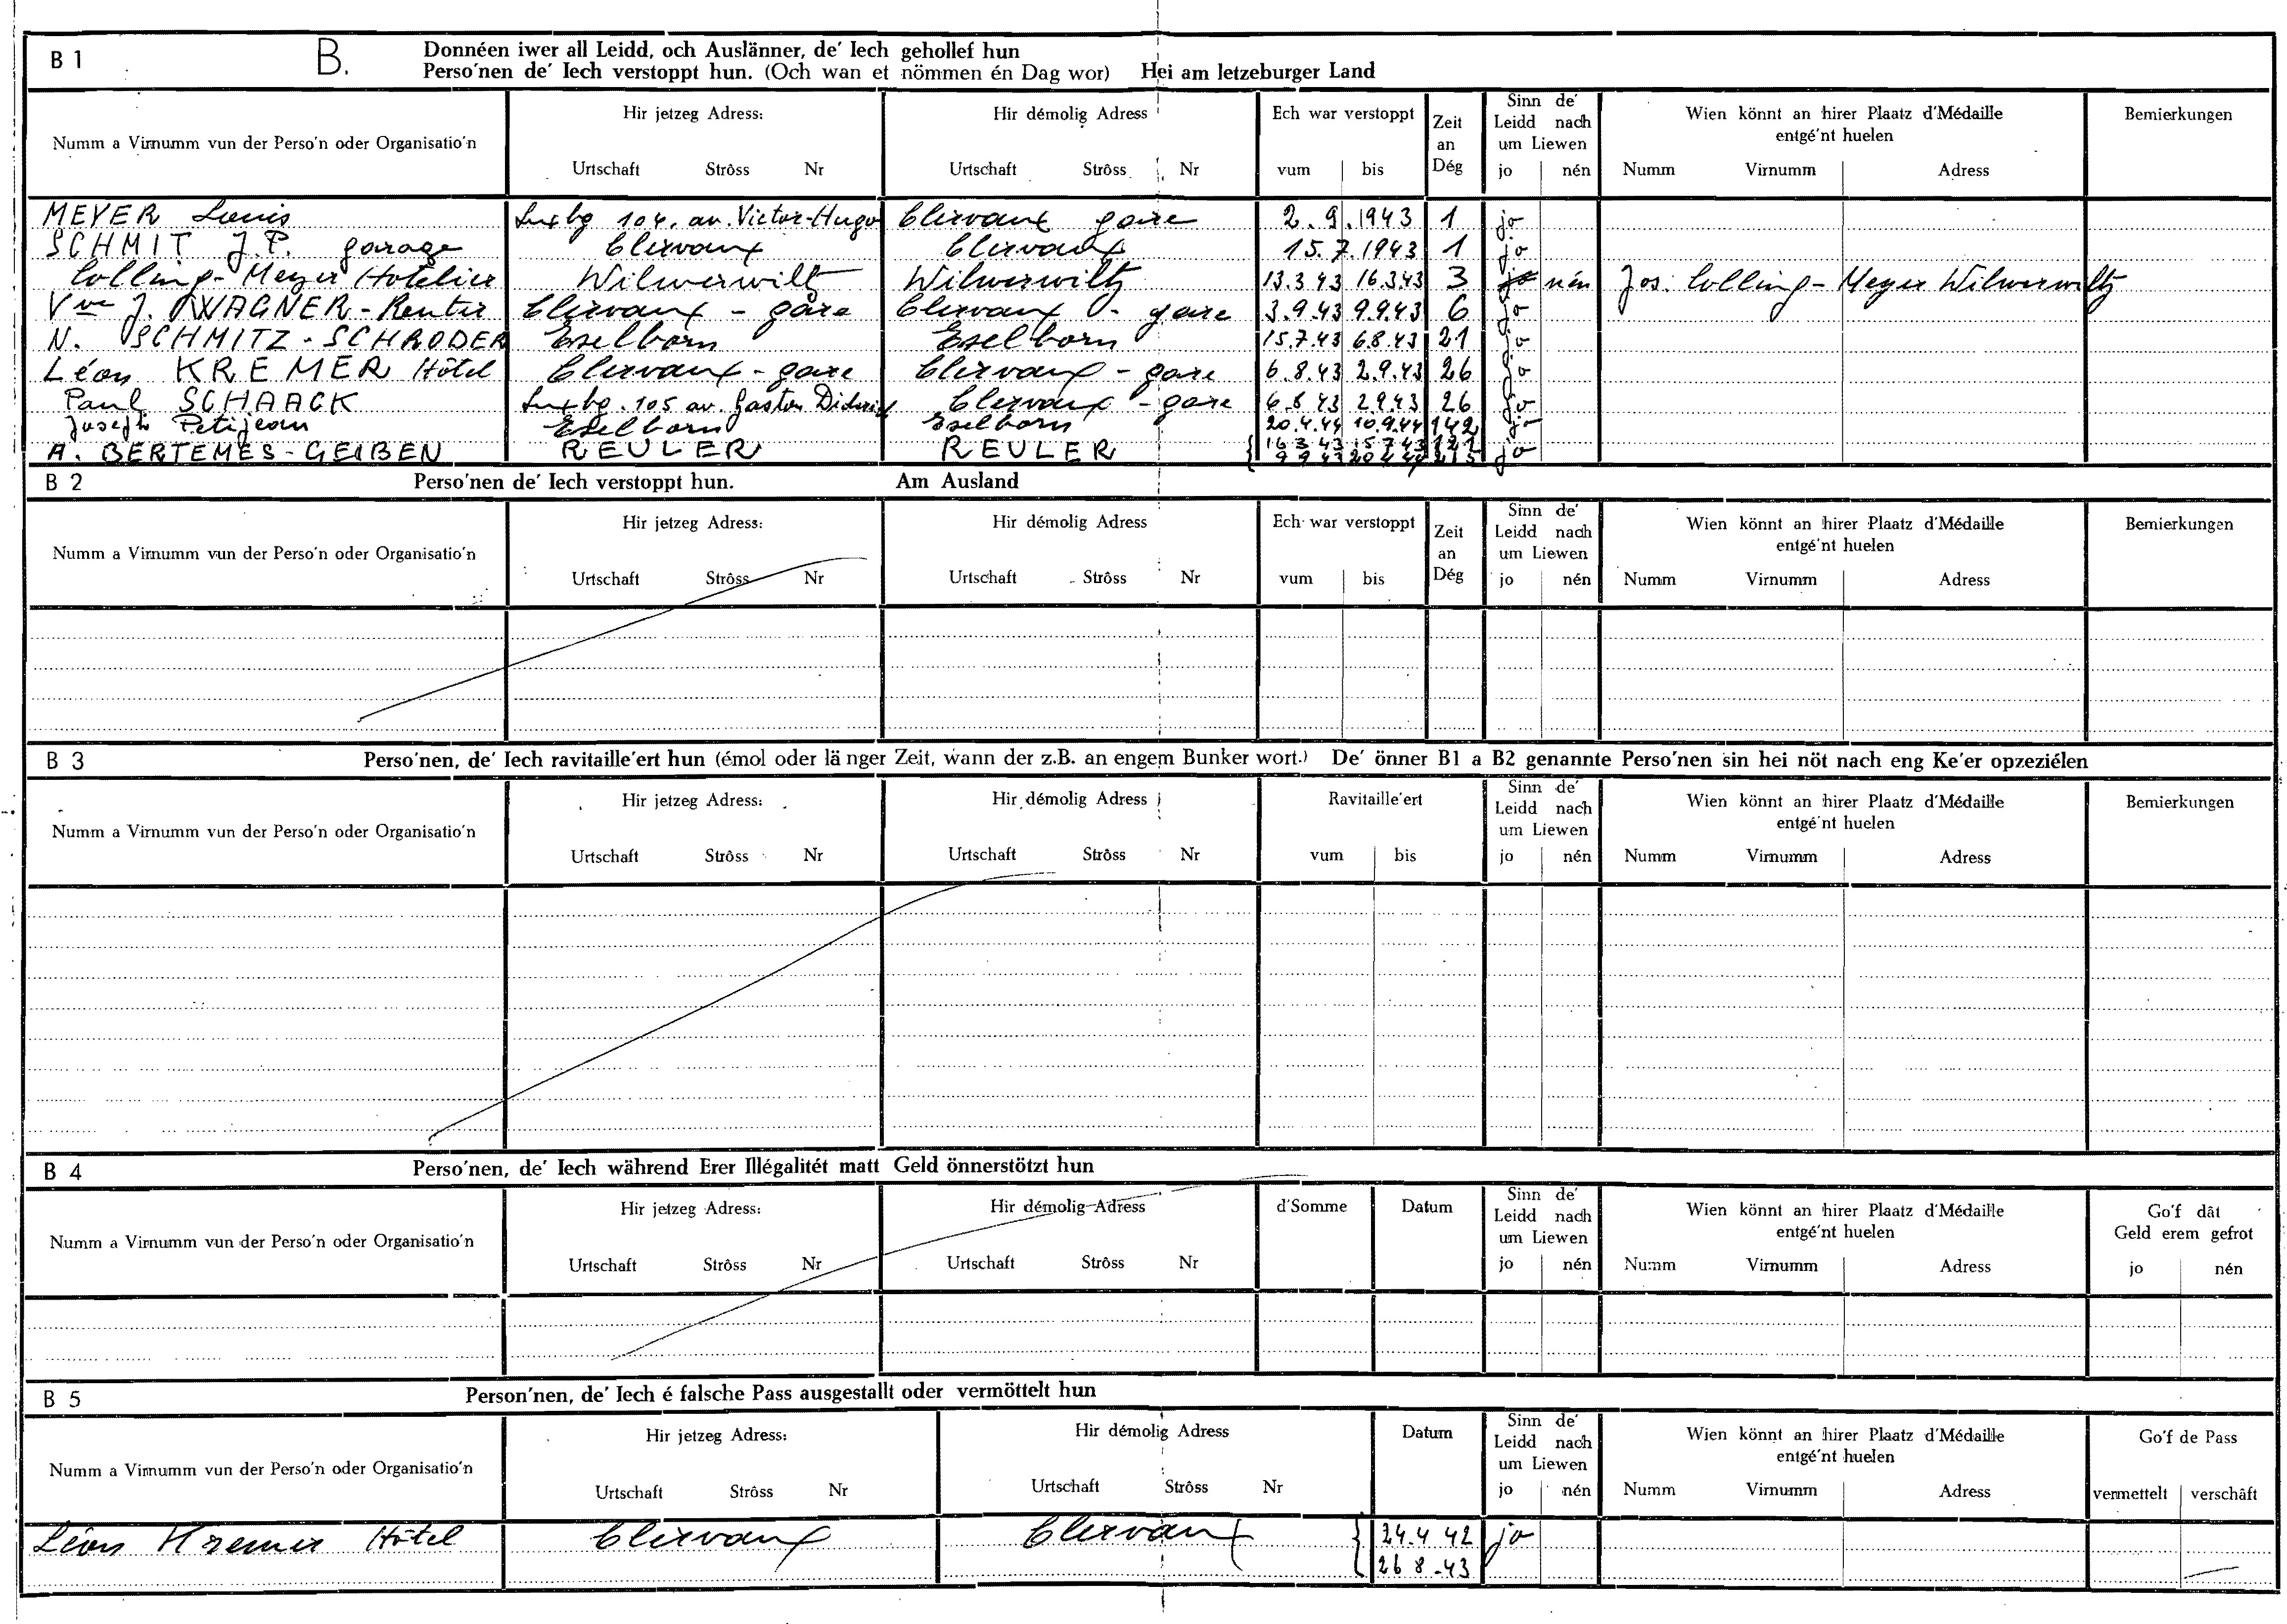 B 1 B. Donnéen iwer all Leidd, och Auslänner, de' Iech gehollef hun
Perso'nen de' Iech verstoppt hun. (Och wan et nömmen én Dag wor) Hei am letzeburger Land
Numm a Virnumm vun der Perso'n oder Organisatio'n
Hir jetzeg Adress:
Urtschaft Strôss Nr
Hir démolig Adress
Urtschaft Strôss Nr
Ech war verstoppt
vum bis
Zeit
an
Dég
Sinn de'
Leidd nach
um Liewen
jo nén
Wien könnt an hirer Plaatz d'Médaille
entgé'nt huelen
Numm Virnumm Adress
Bemierkungen
MEYER Louis Luxbg 104, av. Victor-Hugo Clervaux gare 2.9.1943 1 jo
SCHMIT J.P. garage Clervaux Clervaux 15.7.1943 1 jo
Colling-Meyer Hotelier Wilwerwiltz Wilwerwiltz 13.3.43 16.3.43 3 jo nén Jos. Colling-Meyer Wilwerwiltz
Vve J. WAGNER-Reuter Clervaux - gare Clervaux - gare 3.9.43 9.9.43 6 jo
N. SCHMITZ-SCHRODER Eselborn Eselborn 15.7.43 6.8.43 21 jo
Léon KREMER Hôtel Clervaux - gare Clervaux - gare 6.8.43 2.9.43 26 jo
Paul SCHAACK Luxbg. 105 av. Gaston Diderich Clervaux - gare 6.8.43 2.9.43 26 jo
Joseph Petitjean Eselborn Eselborn 20.4.44 10.9.44 142 jo
A. BERTEMES-GEIBEN REULER REULER 16.3.43 15.7.43 121 jo
B 2 Perso'nen de' Iech verstoppt hun. Am Ausland
Numm a Virnumm vun der Perso'n oder Organisatio'n
Hir jetzeg Adress:
Urtschaft Strôss Nr
Hir démolig Adress
Urtschaft Strôss Nr
Ech war verstoppt
vum bis
Zeit
an
Dég
Sinn de'
Leidd nach
um Liewen
jo nén
Wien könnt an hirer Plaatz d'Médaille
entgé'nt huelen
Numm Virnumm Adress
Bemierkungen
B 3 Perso'nen, de' Iech ravitaille'ert hun (émol oder lä nger Zeit, wann der z.B. an engem Bunker wort.) De' önner B1 a B2 genannte Perso'nen sin hei nöt nach eng Ke'er opzeziélen
Numm a Virnumm vun der Perso'n oder Organisatio'n
Hir jetzeg Adress:
Urtschaft Strôss Nr
Hir démolig Adress
Urtschaft Strôss Nr
Ravitaille'ert
vum bis
Sinn de'
Leidd nach
um Liewen
jo nén
Wien könnt an hirer Plaatz d'Médaille
entgé'nt huelen
Numm Virnumm Adress
Bemierkungen
B 4 Perso'nen, de' Iech während Erer Illégalitét matt Geld önnerstötzt hun
Numm a Virnumm vun der Perso'n oder Organisatio'n
Hir jetzeg Adress:
Urtschaft Strôss Nr
Hir démolig Adress
Urtschaft Strôss Nr
d'Somme
Datum
Sinn de'
Leidd nach
um Liewen
jo nén
Wien könnt an hirer Plaatz d'Médaille
entgé'nt huelen
Numm Virnumm Adress
Go'f dât
Geld erem gefrot
jo nén
B 5 Person'nen, de' Iech é falsche Pass ausgestallt oder vermöttelt hun
Numm a Virnumm vun der Perso'n oder Organisatio'n
Hir jetzeg Adress:
Urtschaft Strôss Nr
Hir démolig Adress
Urtschaft Strôss Nr
Datum
Sinn de'
Leidd nach
um Liewen
jo nén
Wien könnt an hirer Plaatz d'Médaille
entgé'nt huelen
Numm Virnumm Adress
Go'f de Pass
vermettelt verschâft
Léon Kremer Hôtel Clervaux Clervaux 24.4 42 jo
26 8 -43